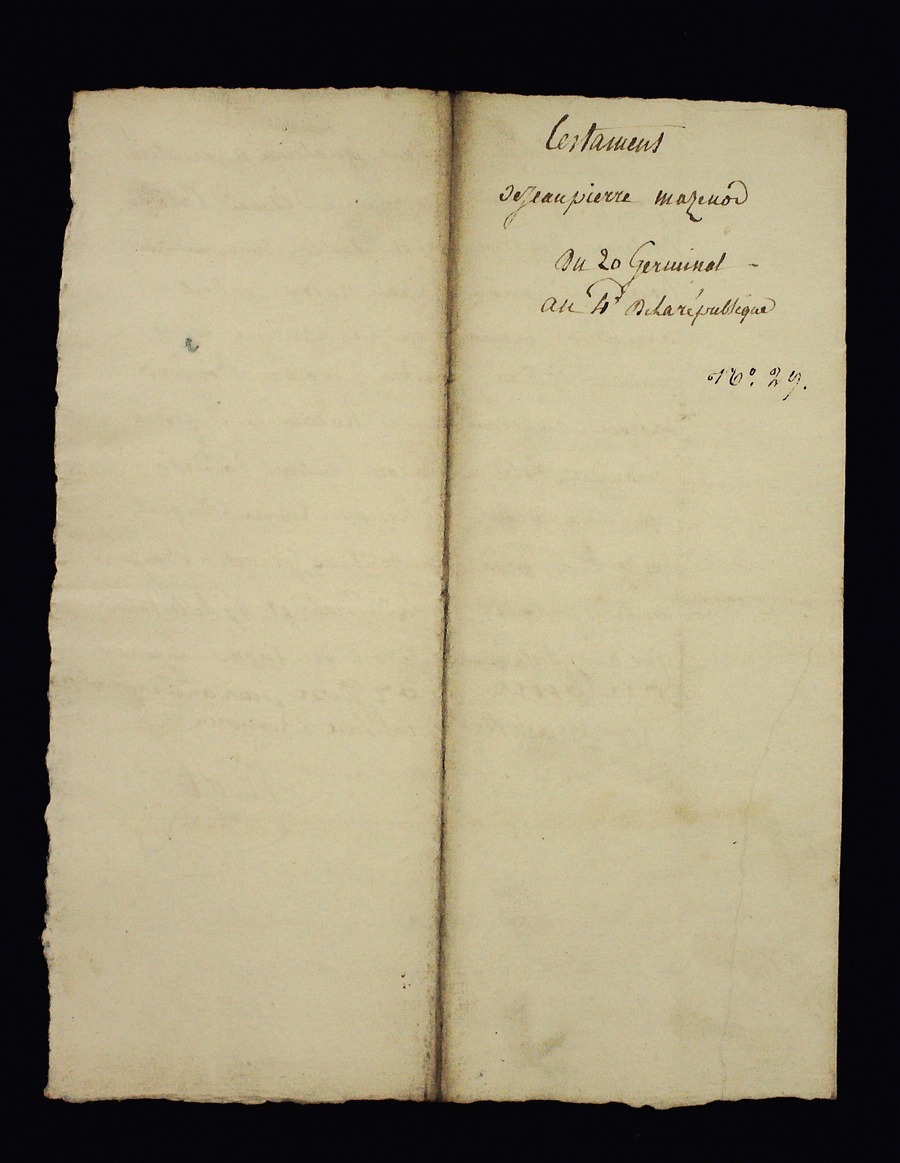 testament
de Jean pierre mazenod
Du 20 Germinal -
an 4e De La république
No. 29.